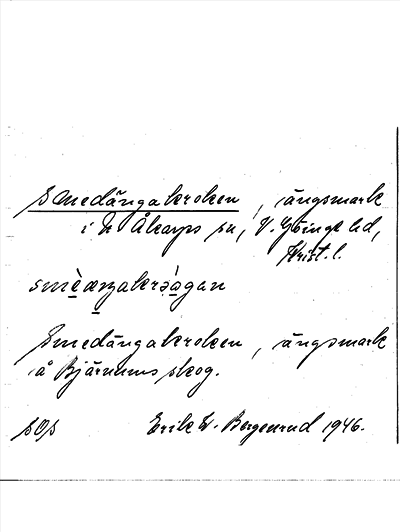 Smedängakroken, ängsmark
i N Åkarps sn, V. Göinge hd,
Krist. l.
Smedängakroken, ängsmark
å Bjärnums skog.
sOs Erik W. Bergenrud 1946.